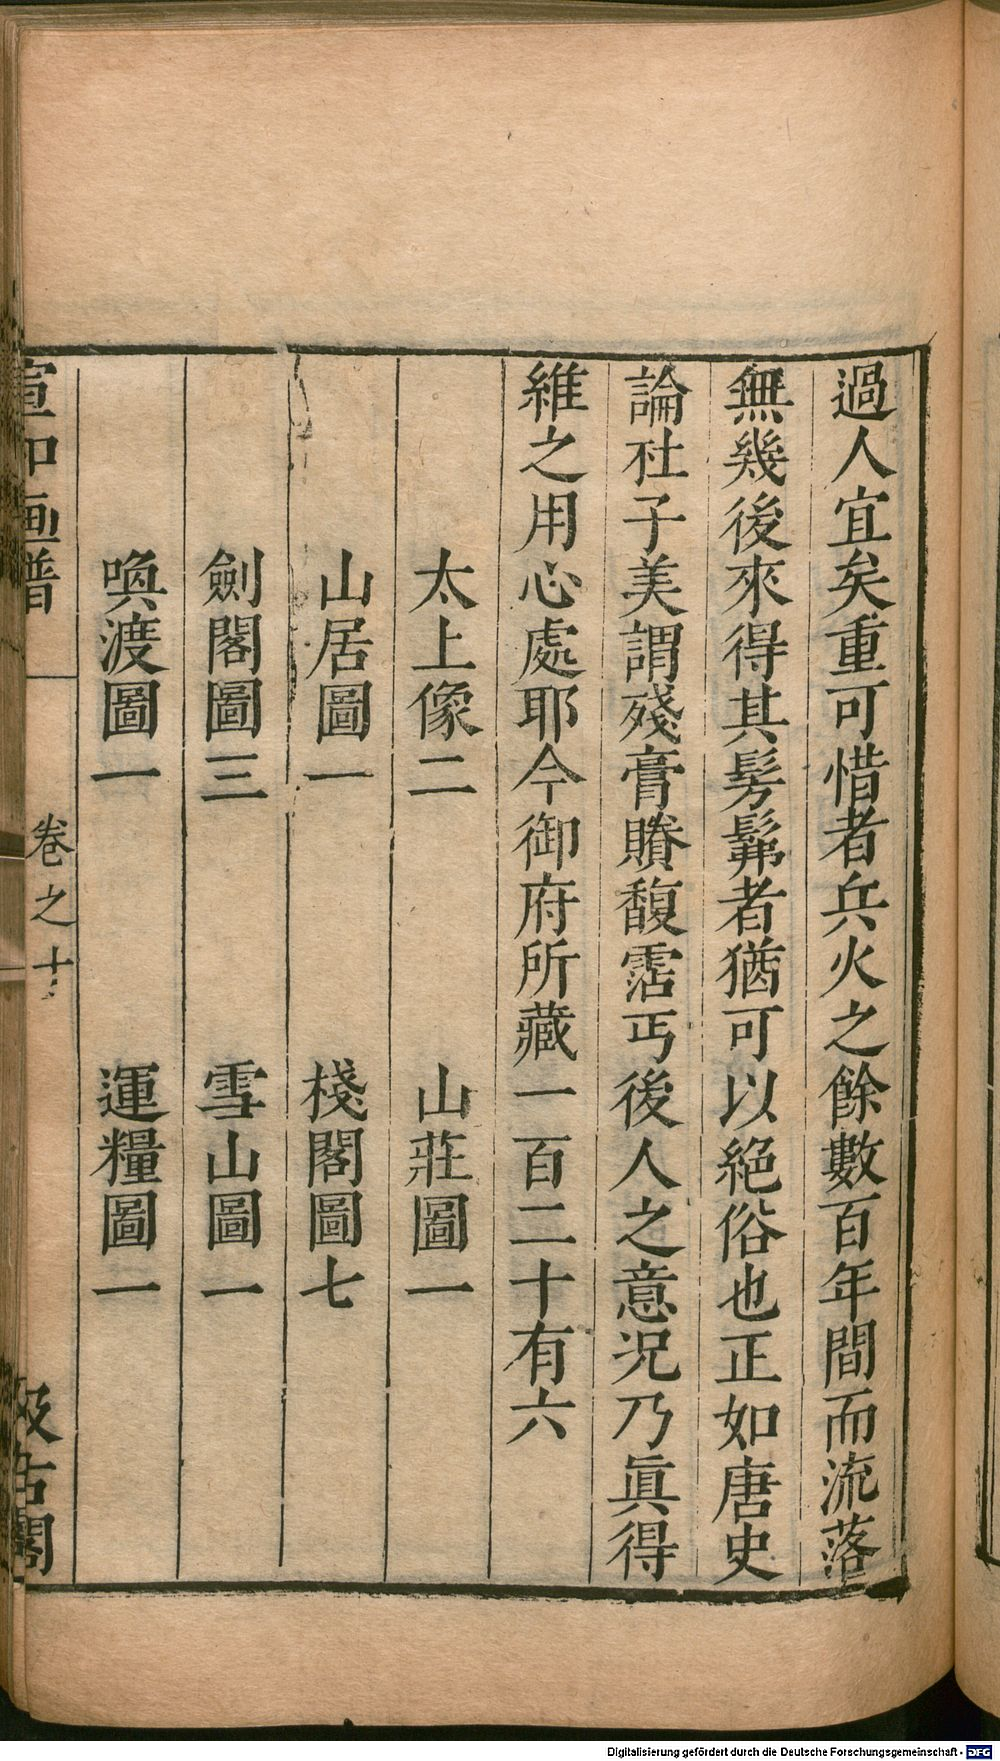 過人宜矣重可惜者兵火之餘數百年間而流落
無幾後來得其髣髴者猶可以絕俗也正如唐史
論杜子美謂殘膏賸馥霑丐後人之意况乃眞得
維之用心處耶今御府所藏一百二十有六
太上像二 山莊圖一
山居圖一 棧閣圖七
劍閣圖三 雪山圖一
喚渡圖一 運糧圖一
宣和画譜 卷之十 汲古閣
Digitalisierung gefördert durch die Deutsche Forschungsgemeinschaft - DFG